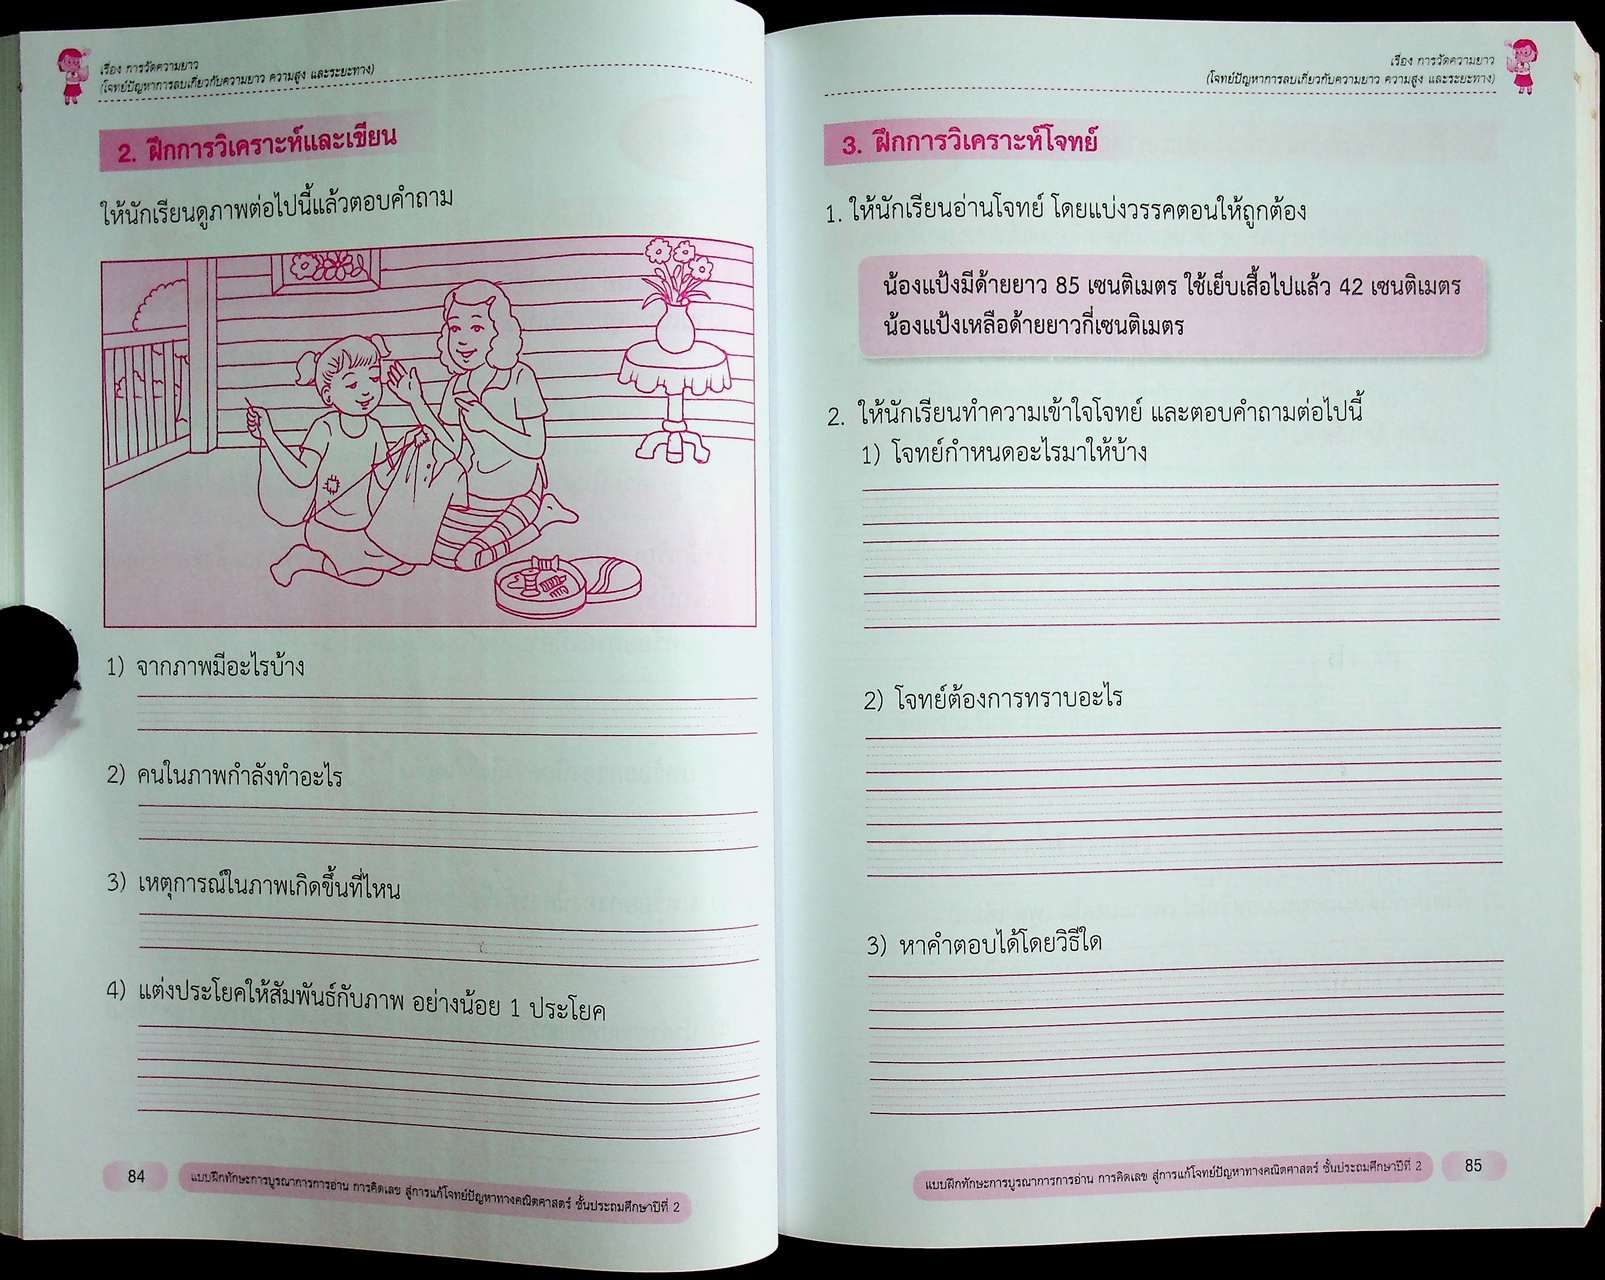 เรื่อง การวัดความยาว
(โจทย์ปัญหาการลบเกี่ยวกับความยาว ความสูง และระยะทาง)
2. ฝึกการวิเคราะห์และเขียน
ให้นักเรียนดูภาพต่อไปนี้แล้วตอบคำถาม
1) จากภาพมีอะไรบ้าง
2) คนในภาพกำลังทำอะไร
3) เหตุการณ์ในภาพเกิดขึ้นที่ไหน
4) แต่งประโยคให้สัมพันธ์กับภาพ อย่างน้อย 1 ประโยค
84 แบบฝึกทักษะการบูรณาการการอ่าน การคิดเลข สู่การแก้โจทย์ปัญหาทางคณิตศาสตร์ ชั้นประถมศึกษาปีที่ 2
เรื่อง การวัดความยาว
(โจทย์ปัญหาการลบเกี่ยวกับความยาว ความสูง และระยะทาง)
3. ฝึกการวิเคราะห์โจทย์
1. ให้นักเรียนอ่านโจทย์ โดยแบ่งวรรคตอนให้ถูกต้อง
น้องแป้งมีด้ายยาว 85 เซนติเมตร ใช้เย็บเสื้อไปแล้ว 42 เซนติเมตร
น้องแป้งเหลือด้ายยาวกี่เซนติเมตร
2. ให้นักเรียนทำความเข้าใจโจทย์ และตอบคำถามต่อไปนี้
1) โจทย์กำหนดอะไรมาให้บ้าง
2) โจทย์ต้องการทราบอะไร
3) หาคำตอบได้โดยวิธีใด
แบบฝึกทักษะการบูรณาการการอ่าน การคิดเลข สู่การแก้โจทย์ปัญหาทางคณิตศาสตร์ ชั้นประถมศึกษาปีที่ 2 85